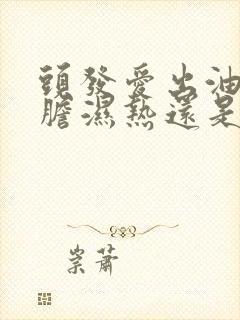 頭發愛出油
膽濕熱還是
崇蕭